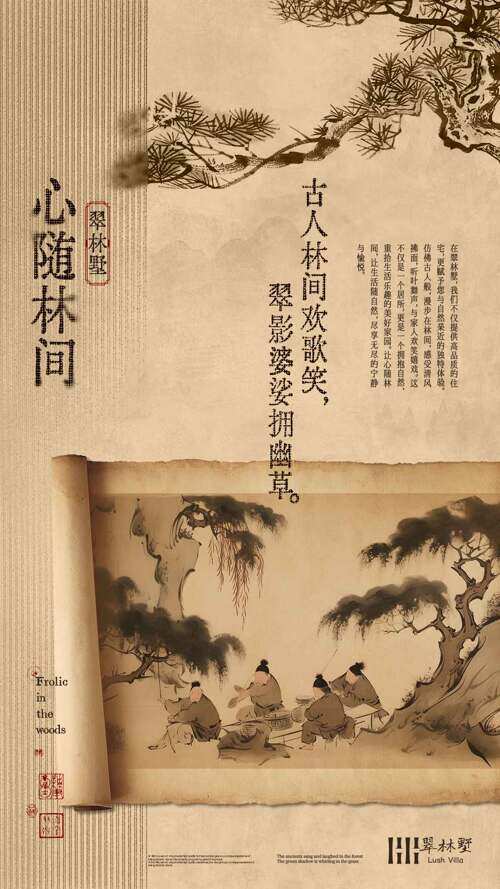 心随林间
翠林墅
古人林间欢歌笑，
翠影婆娑拥幽草。
在翠林墅，我们不仅提供高品质的住
宅，更赋予您与自然亲近的独特体验。
仿佛古人般，漫步在林间，感受清风
拂面，听叶舞声，与家人欢笑嬉戏。这
不仅是一个居所，更是一个拥抱自然、
重拾生活乐趣的美好家园。让心随林
间，让生活随自然，尽享无尽的宁静
与愉悦。
Frolic
in
the
woods
The ancients sang and laughed in the forest
The green shadow is whirling in the grass
翠林墅
Lush Villa